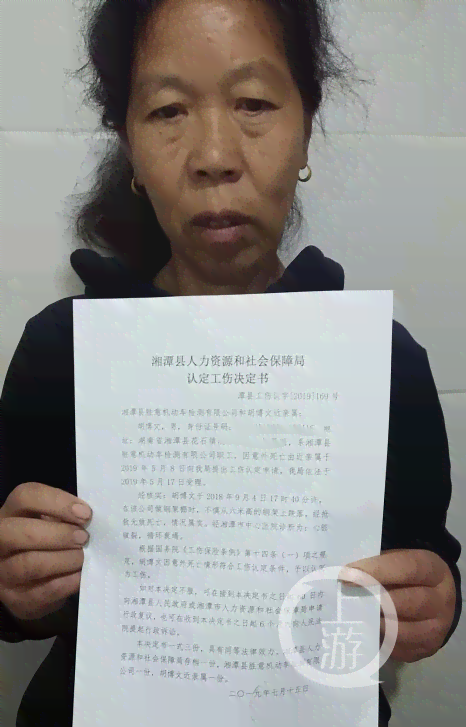 湘潭县人力资源和社会保障局
认定工伤决定书
潭县工伤认字[2019]169号
湘潭县胜意机动车检测有限公司和胡博文近亲属：
胡博文，男，身份证号码：
址：湖南省湘潭县花石镇 系湘潭县
胜意机动车检测有限公司职工，因意外死亡由近亲属于
2019年5月8日向我局提出工伤认定申请，我局依法于
2019年5月17日受理。
经核实：胡博文于2018年9月4日17时10分许，
在该公司做钢架棚时，不慎从六米高的钢架上跌落，经抢
救无效死亡，情况属实，经湘潭市中心医院诊断为：心脏
破裂，循环衰竭。
根据国务院《工伤保险条例》第十四条（一）项之规
定，胡博文因意外死亡情形符合工伤认定条件，予以认定
为工伤。
如对本决定不服，可在接到本决定书之日起60日内
向湘潭县人民政府或湘潭市人力资源和社会保障局申请
行政复议，也可在收到本决定书之日起6个月内向人民法
院提起行政诉讼。
本决定书一式三份，具有同等法律效力，湘潭县人力
资源和社会保障局存档一份，湘潭县胜意机动车检测有限
公司一份，胡博文近亲属一份。
二〇一九年七月十五日
上游